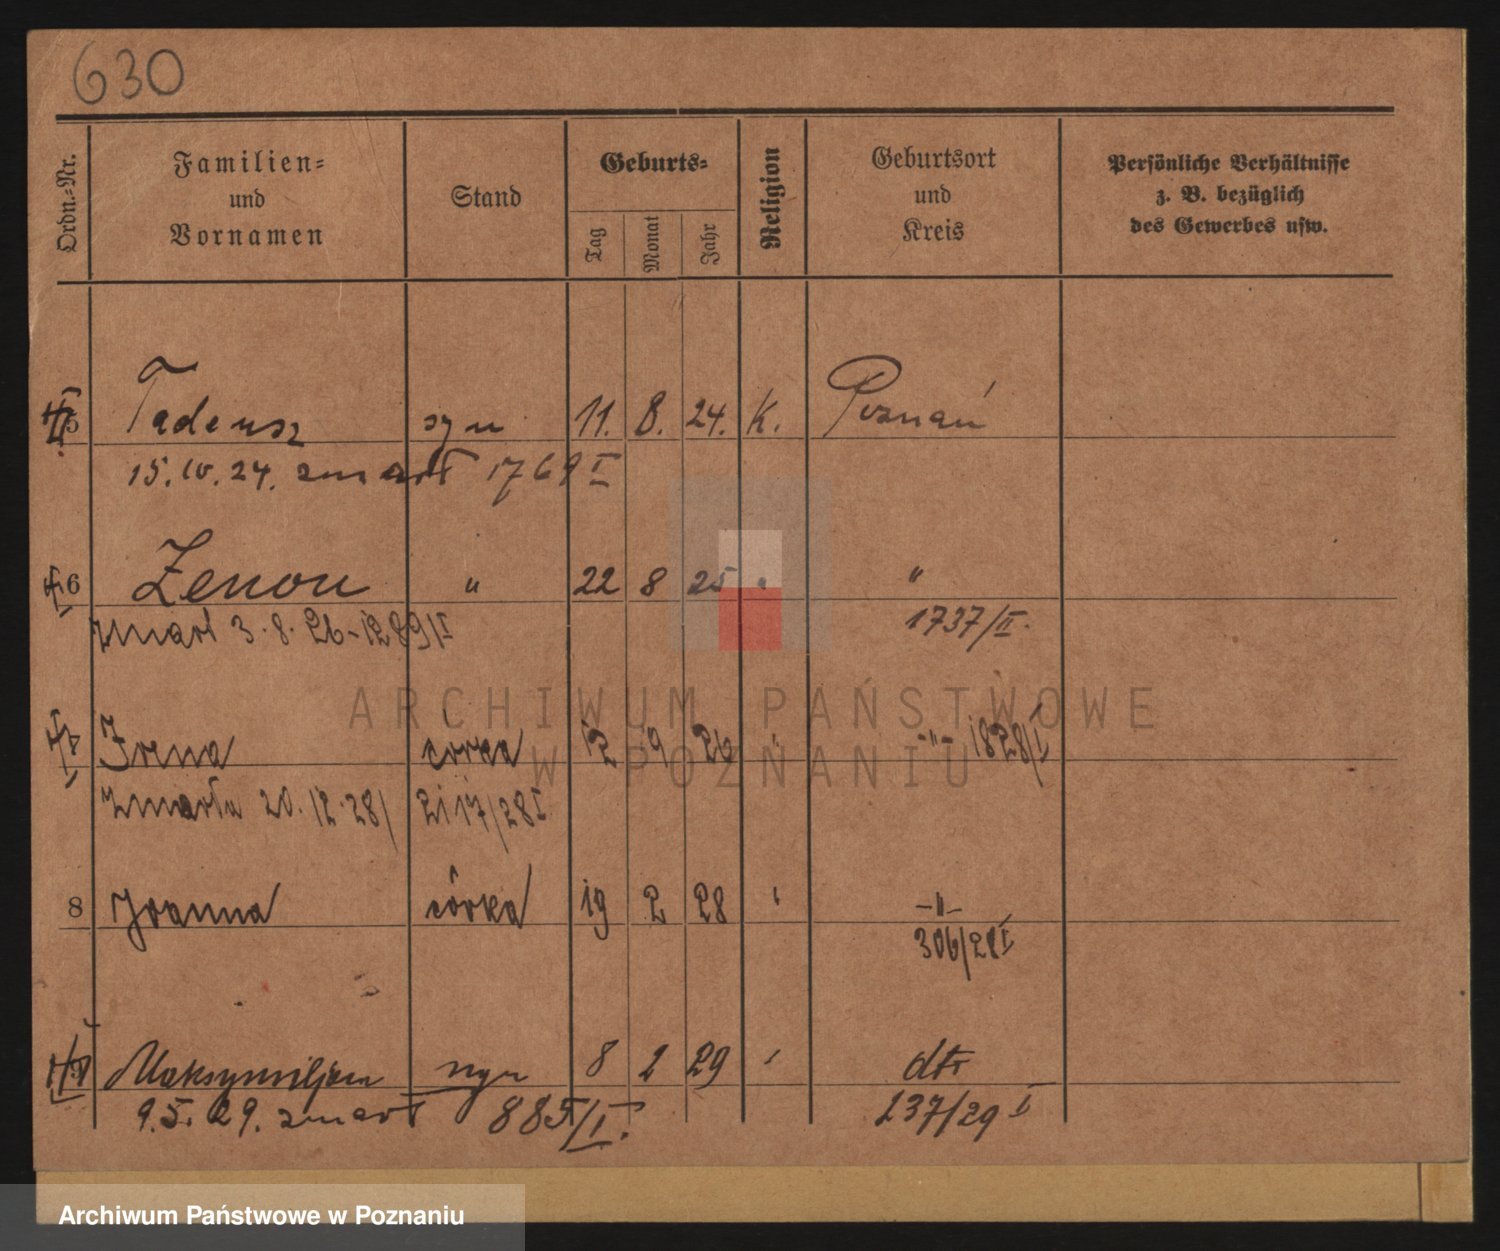 630
Ordn.-Nr.
Familien-
und
Vornamen
Stand
Geburts-
Tag
Monat
Jahr
Religion
Geburtsort
und
Kreis
Persönliche Verhältnisse
z. B. bezüglich
des Gewerbes usw.
5 Tadeusz syn 11. 8. 24. K. Poznań
15. 10. 24. zmarł 1769 I
6 Zenon " 22 8 25 " "
zmarł 3.8.26-1289/I 1737/II.
Irena córka 12 9 26 " -"- 1828/I
Zmarła 20.12.28/ 2117/28 I
8 Joanna córka 19 2 28 " -"-
306/28 I
9 Maksymiljan syn 8 2 29 " dto
9.5.29. zmarł 885/I. 237/29 I
ARCHIWUM PAŃSTWOWE
W POZNANIU
Archiwum Państwowe w Poznaniu